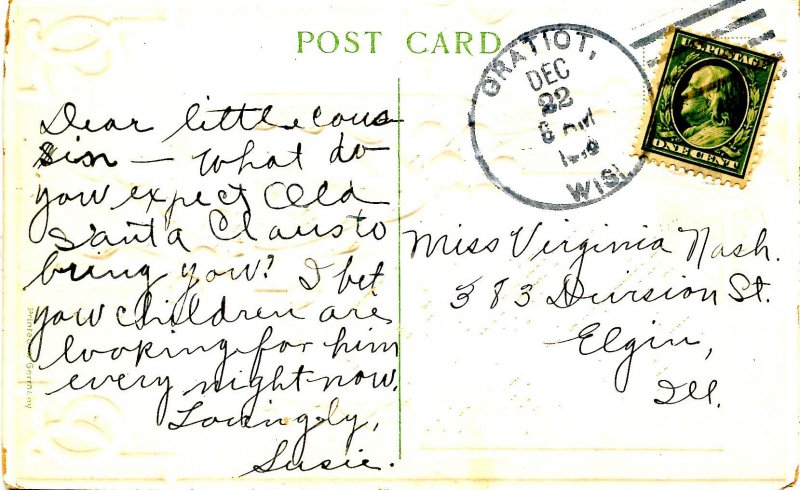 POST CARD
GRATIOT,
DEC
22
WIS.
U.S. POSTAGE
ONE CENT
Dear little cou-
sin — What do
you expect Old
Santa Claus to
bring you? I bet
you children are
looking for him
every night now.
Lovingly,
Susie.
Miss Virginia Nash.
383 Division St.
Elgin,
Ill.
Printed in Germany